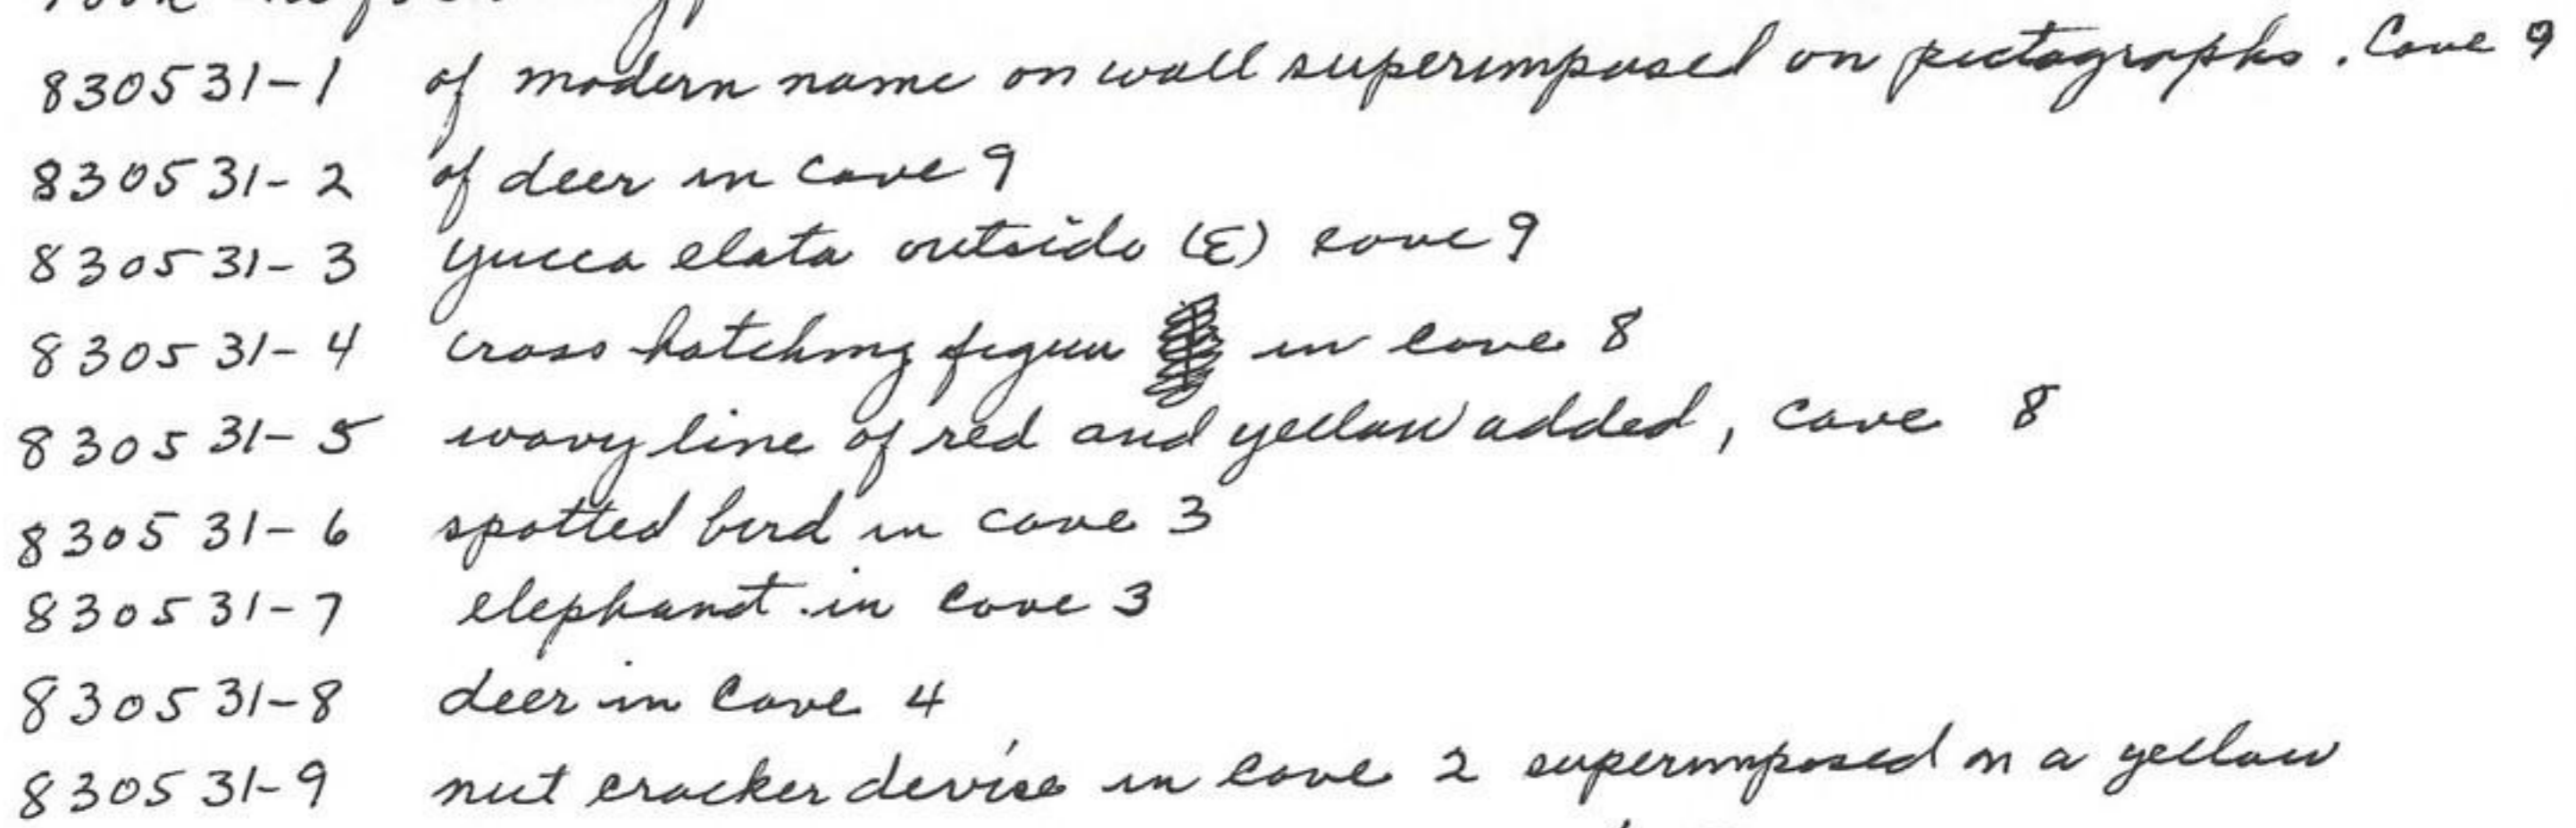 took
830531-1 of modern name on wall superimposed on pictographs. Cave 9
830531-2 of deer in cave 9
830531-3 yucca elata outside (E) cave 9
830531-4 cross hatching figure in cave 8
830531-5 wavy line of red and yellow added, cave 8
830531-6 spotted bird in cave 3
830531-7 elephant in cave 3
830531-8 deer in Cave 4
830531-9 nut cracker devise in cave 2 superimposed on a yellow